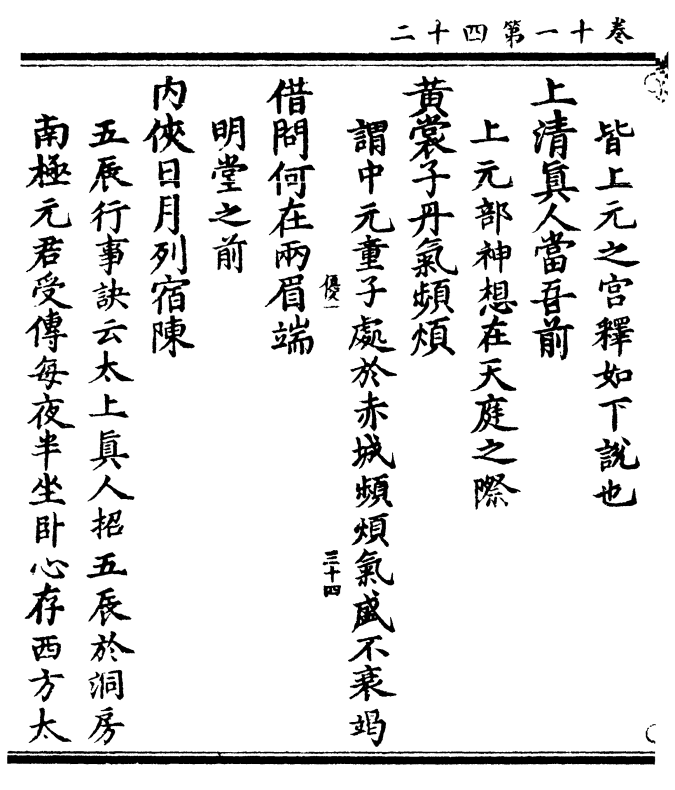 卷十一第四十二
皆上元之宫釋如下說也
上清眞人當吾前
上元部神想在天庭之際
黄裳子丹氣頻煩
謂中元童子處於赤城頻煩氣盛不衰竭
優一
三十四
借問何在兩眉端
明堂之前
内俠日月列宿陳
五辰行事訣云太上眞人招五辰於洞房
南極元君受傳每夜半坐卧心存西方太